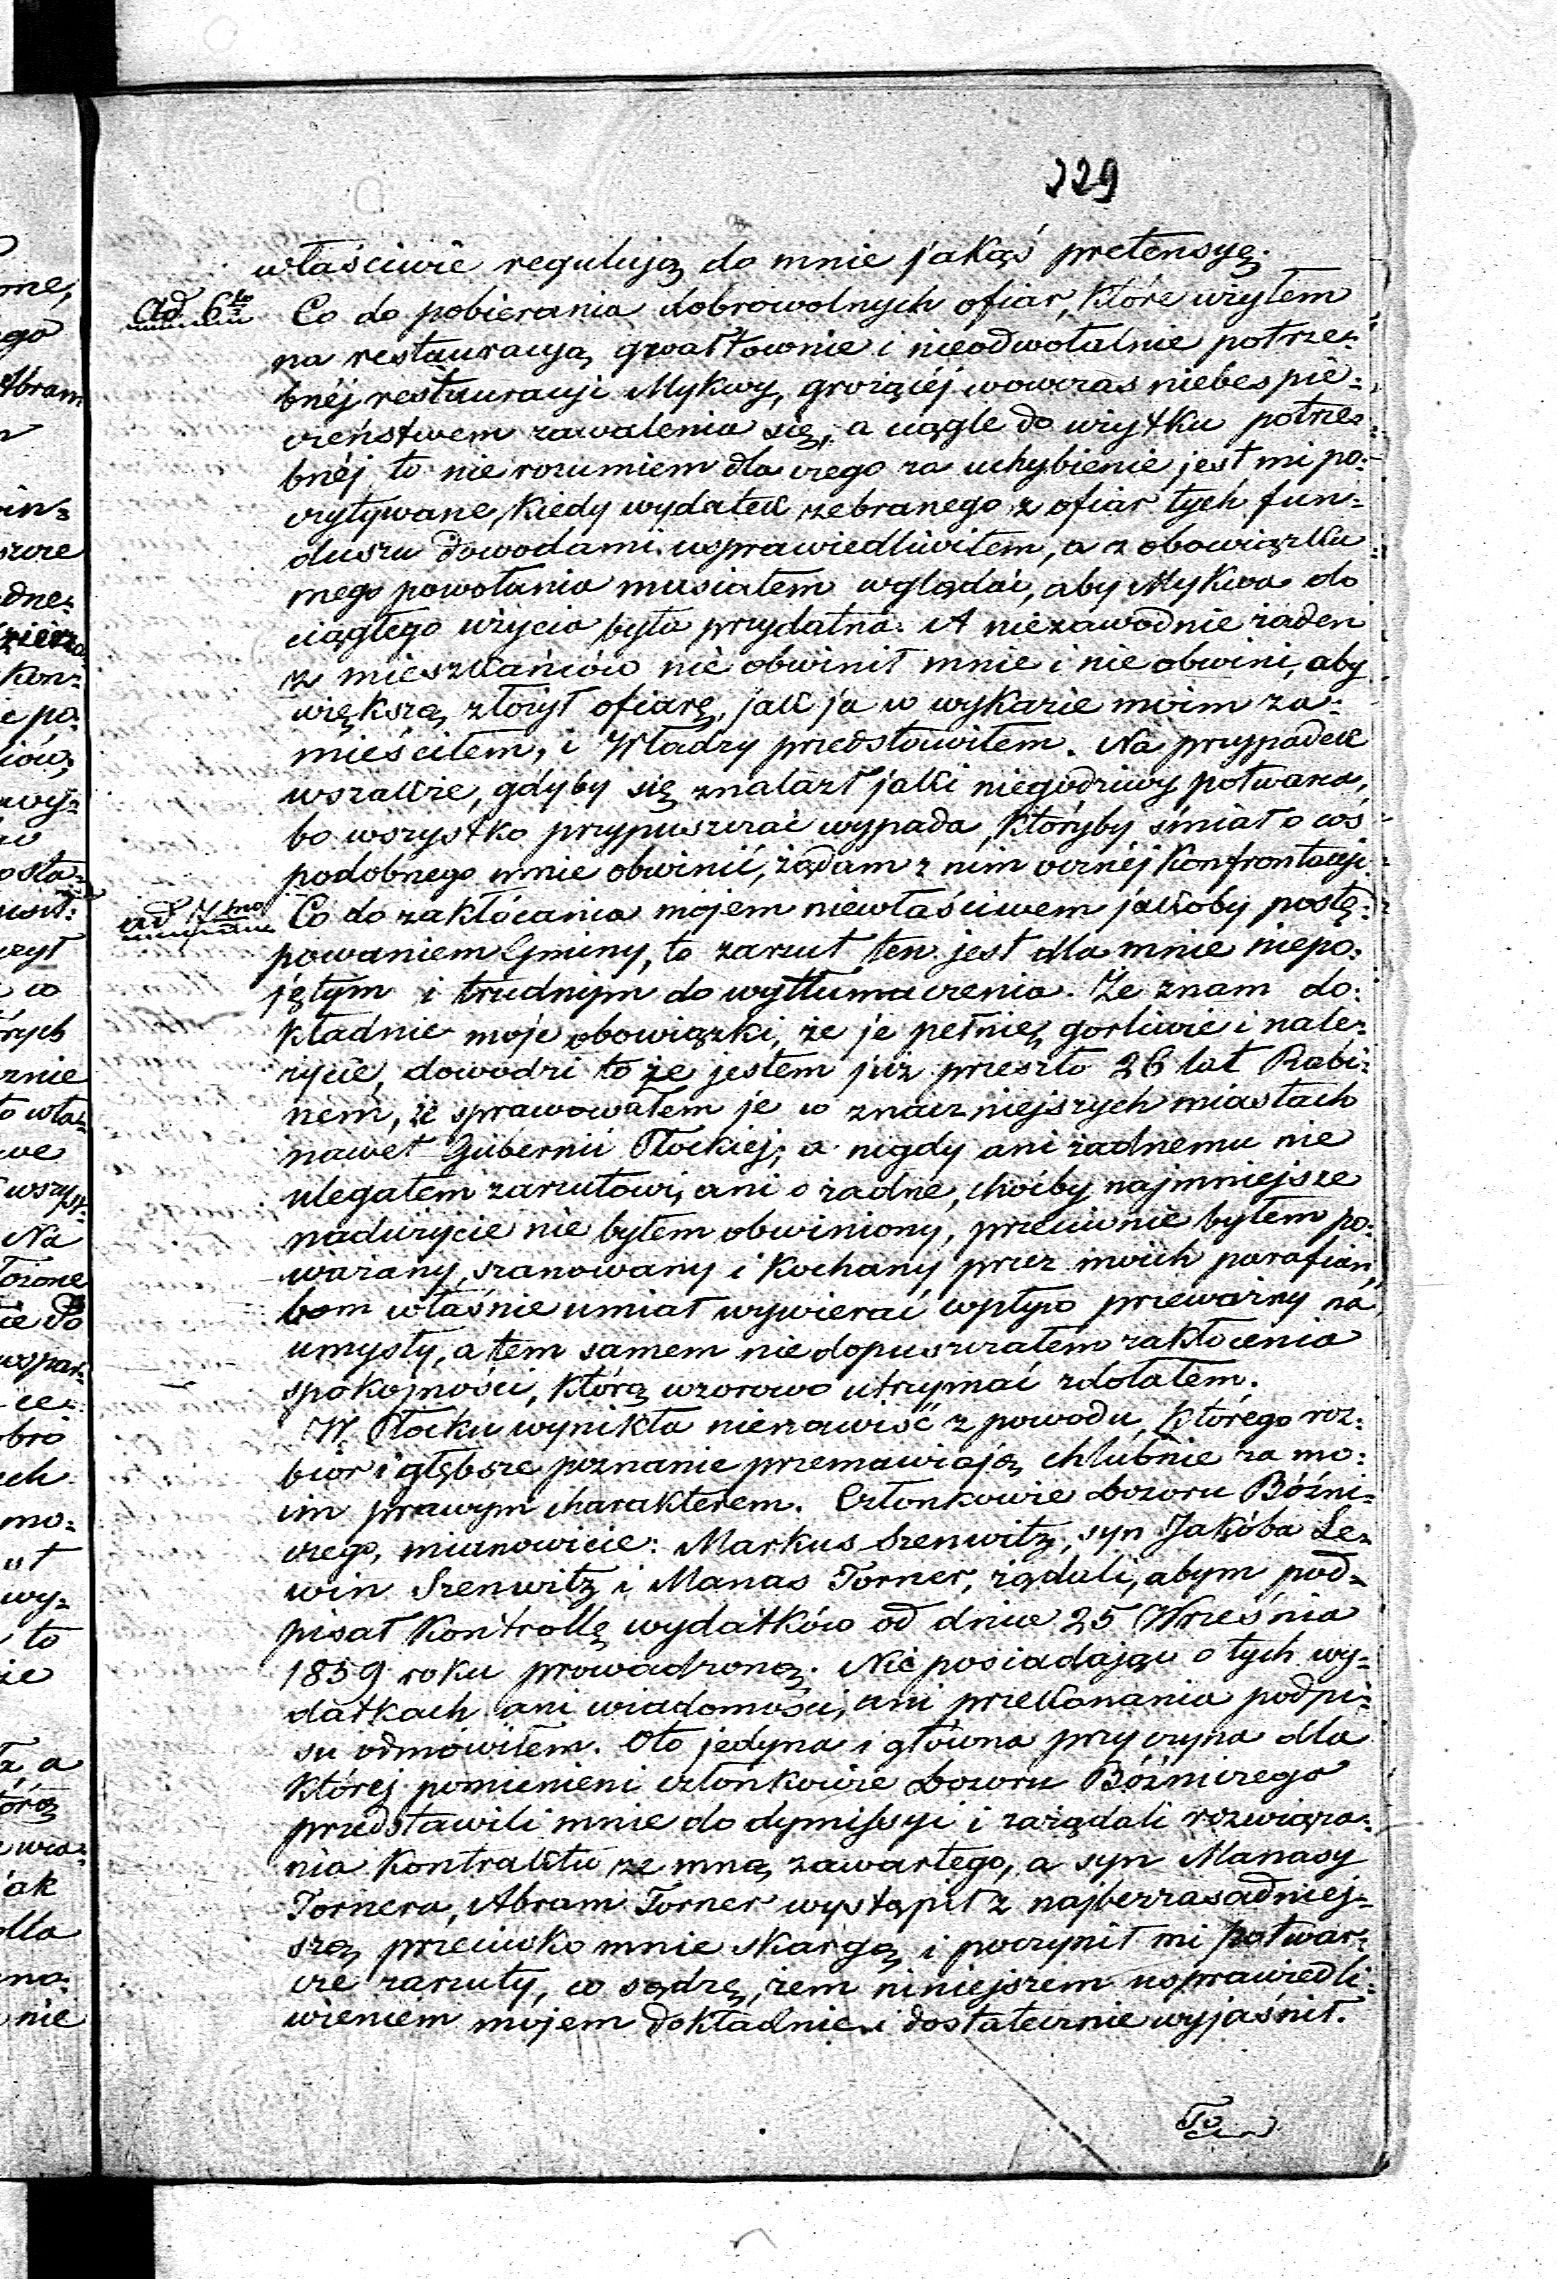 229
właściwie regulują do mnie jakąś pretensyę.
ad 6to Co do pobierania dobrowolnych ofiar, które użyłem
na restauracyą gwałtownie i nieodwołalnie potrze-
bnéj restauracyi Mykwy, grożącéj wówczas niebespie-
czeństwem zawalenia się, a ciągle do użytku potrze-
bnéj, to nie rozumiem dla czego za uchybienie jest mi po-
czytywane, kiedy wydatek zebranego z ofiar tych fun-
duszu dowodami usprawiedliwiłem, a z obowiązku
mego powołania musiałem wglądać, aby Mykwa do
ciągłego użycia była przydatna. A niezawodnie żaden
z mieszkańców nie obwinił mnie i nie obwini, aby
większą złożył ofiarę, jak ja w wykazie moim za-
mieściłem, i Władzy przedstawiłem. Na przypadek
wszakże, gdyby się znalazł jakiś niegodziwy potwarca,
bo wszystko przypuszczać wypada, któryby śmiał o coś
podobnego mnie obwinić, żądam z nim ocznéj konfrontacyi.
ad 7mo Co do zakłócania mojem niewłaściwem jakoby postę-
powaniem Gminy, to zarzut ten jest dla mnie niepo-
jętym i trudnym do wytłumaczenia. Że znam do-
kładnie moje obowiązki, że je pełnię gorliwie i nale-
życie, dowodzi to że jestem już przeszło 26 lat Rabi-
nem, że sprawowałem je w znaczniejszych miastach
nawet Gubernii Płockiej, a nigdy ani żadnemu nie
ulegałem zarzutowi, ani o żadne, choćby najmniejsze
nadużycie nie byłem obwiniony, przeciwnie byłem po-
ważany, szanowany i kochany przez moich parafian,
bom właśnie umiał wywierać wpływ przeważny na
umysły, a tem samem nie dopuszczałem zakłócenia
spokojności, którą wzorowo utrzymać zdołałem.
W Płocku wynikła nienawiść z powodu, którego roz-
biór i głębsze poznanie przemawiają chlubnie za mo-
im prawym charakterem. Członkowie Dozoru Bóźni-
czego, mianowicie: Markus Szenwitz, syn Jakóba Le-
win Szenwitz i Manas Torner, żądali, abym pod-
pisał kontrollę wydatków od dnia 25 Września
1859 roku prowadzoną. Nie posiadając o tych wy-
datkach ani wiadomości, ani przekonania podpi-
su odmówiłem. Oto jedyna i główna przyczyna dla
której pomienieni członkowie Dozoru Bóźniczego
przedstawili mnie do dymissyi i zażądali rozwiąza-
nia kontraktu ze mną zawartego, a syn Manasy
Tornera, Abram Torner wystąpił z najbezzasadniej-
szą przeciwko mnie skargą i poczynił mi potwar-
cze zarzuty, co sądzę, żem niniejszem usprawiedli-
wieniem mojem dokładnie i dostatecznie wyjaśnił.